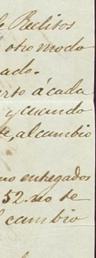 de Reditos
otro modo
ado.
rto á cada
y cuando
al cambio
no entregados
52. no de
l cambio